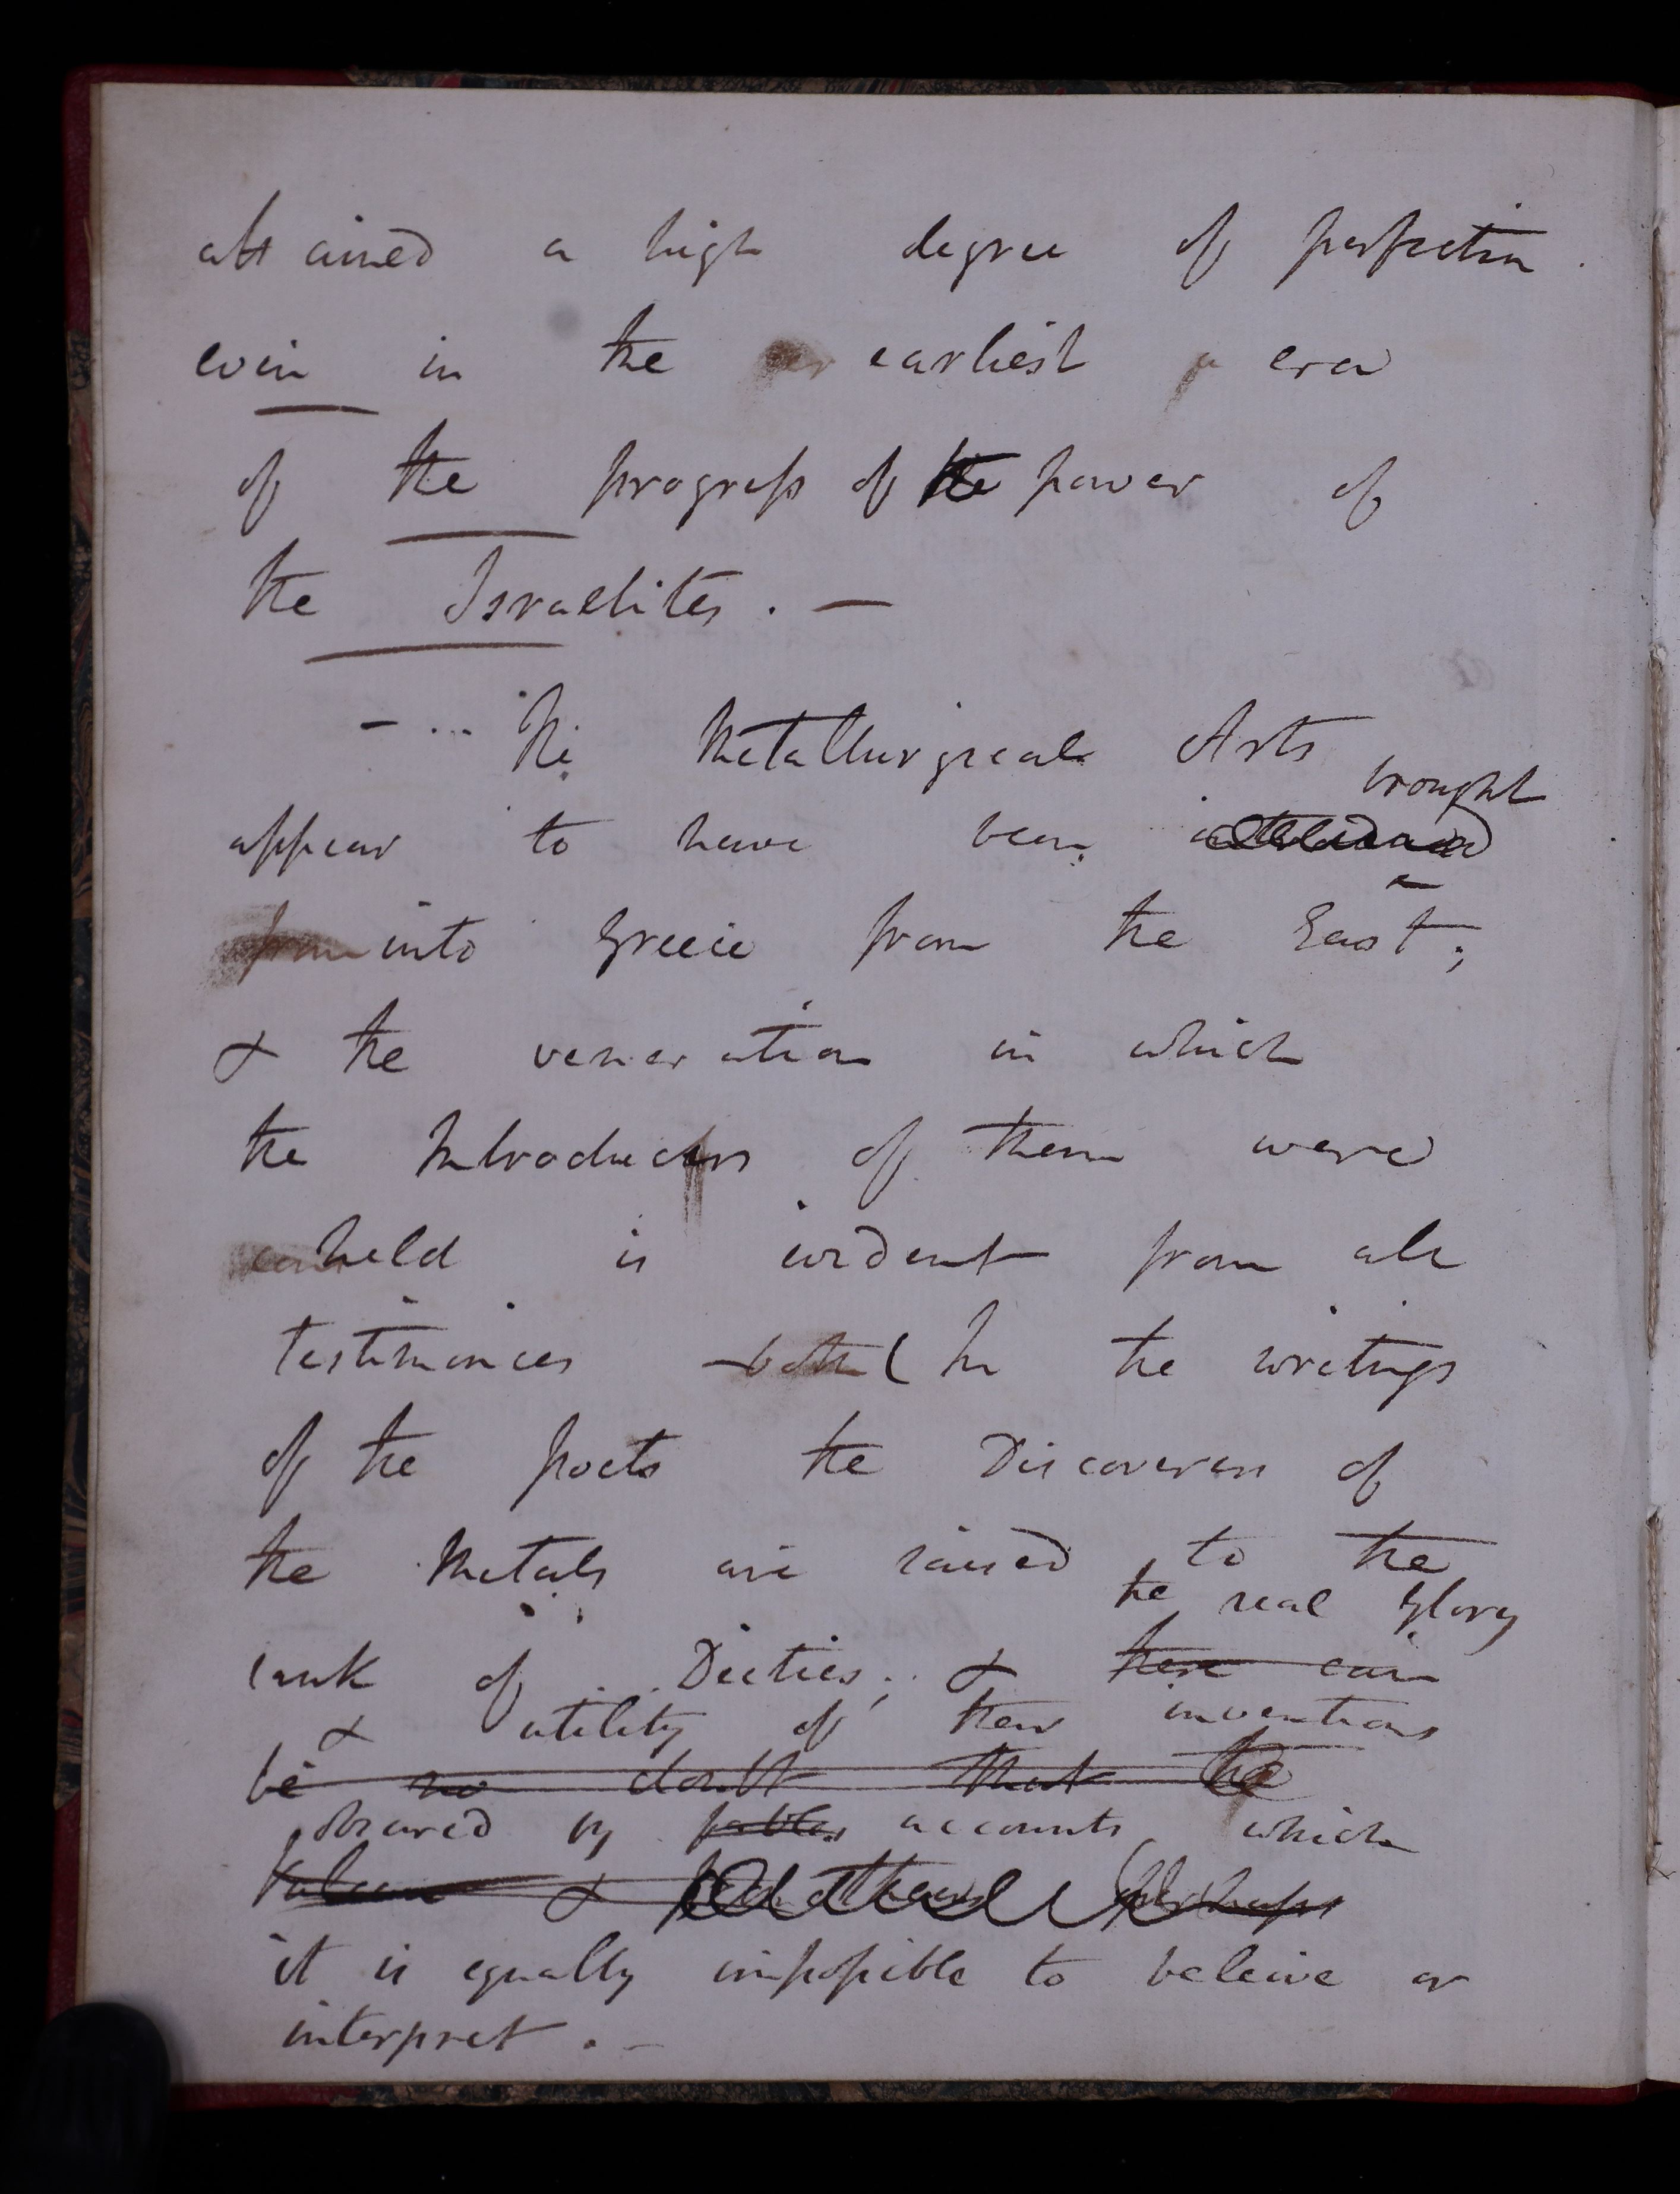 attained a high degree of perfection.
even in the earliest era
of the progress of the power of
the Israelites. —
— ... The Metallurgical Arts
brought
appear to have been
from into Greece from the East;
& the veneration in which
the Introductors of them were
held is evident from all
testimonies both (In the writings
of the poets the Discoverers of
the Metals are raised to the
the real glory
rank of Dieties; & there can
& utility of their inventions
be no doubt that the
obscured by fables accounts which
Vulcan & perhaps
it is equally impossible to beleive or
interpret. —